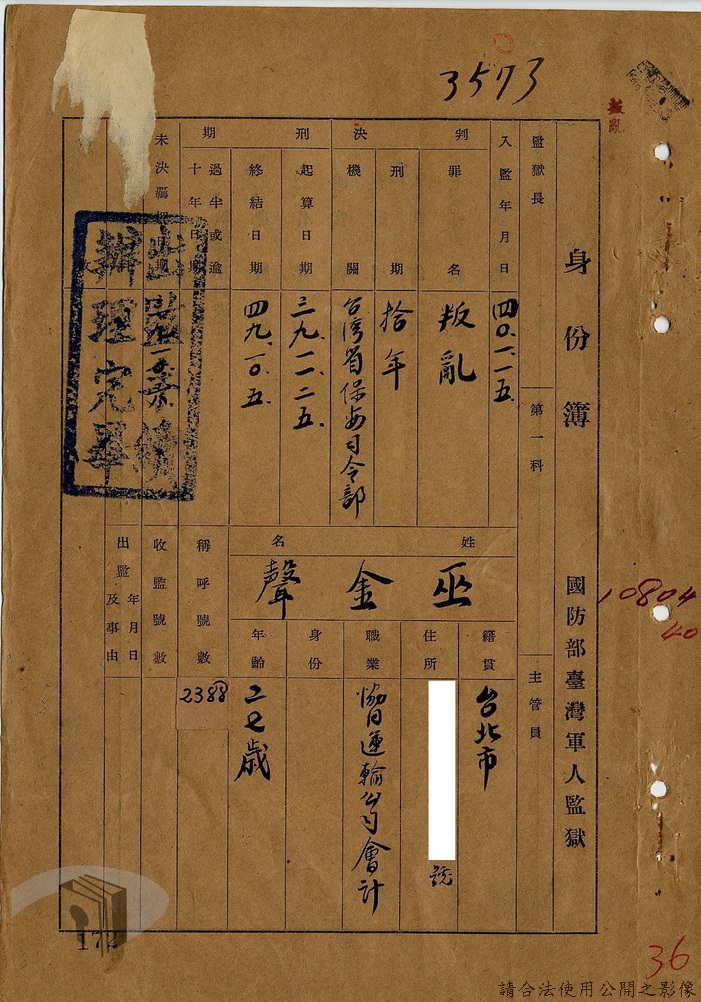 3573
叛亂
身份簿 國防部臺灣軍人監獄
監獄長 第一科 主管員
入監年月日 四〇.一.一五.
判決
罪名 叛亂
刑期 拾年
機關 台湾省保安司令部
刑期
起算日期 三九.一一.二五.
終結日期 四九.一〇.五.
過半或逾十年日期
未決羈
出監業績
辦理完畢
姓名 巫金聲
籍貫 台北市
住所 號
職業 協日運輸公司會計
身份
年齡 二七歲
稱呼號數 2388
收監號數
出監年月日及事由
10804
40
36
172
請合法使用公開之影像